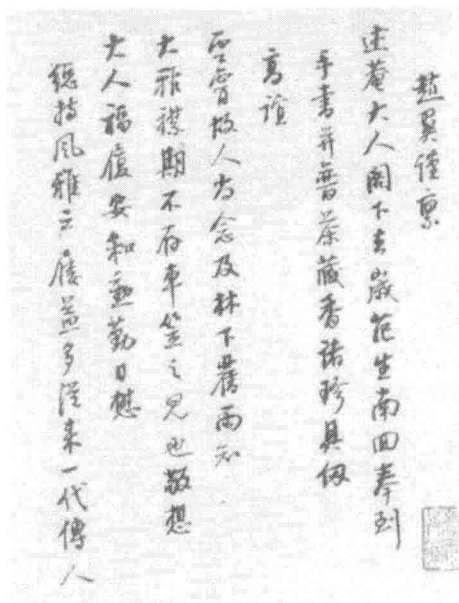 趙翼謹稟
述菴大人閣下去歲范生南回奉到
手書并普茶藏香諸珍具佩
高誼
雲霄故人尚念及林下舊雨知
大雅襟期不存車笠之見也敬想
大人福履安和勳勤日懋
總持風雅益多從來一代傳人